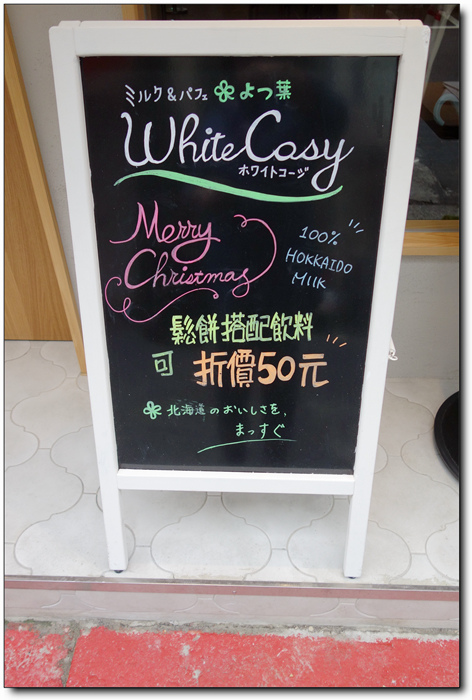 ミルク&パフェ よつ葉
White Cosy
ホワイトコージ
Merry
Christmas
100%
HOKKAIDO
MILK
鬆餅搭配飲料
可 折價50元
北海道のおいしさを、
まっすぐ